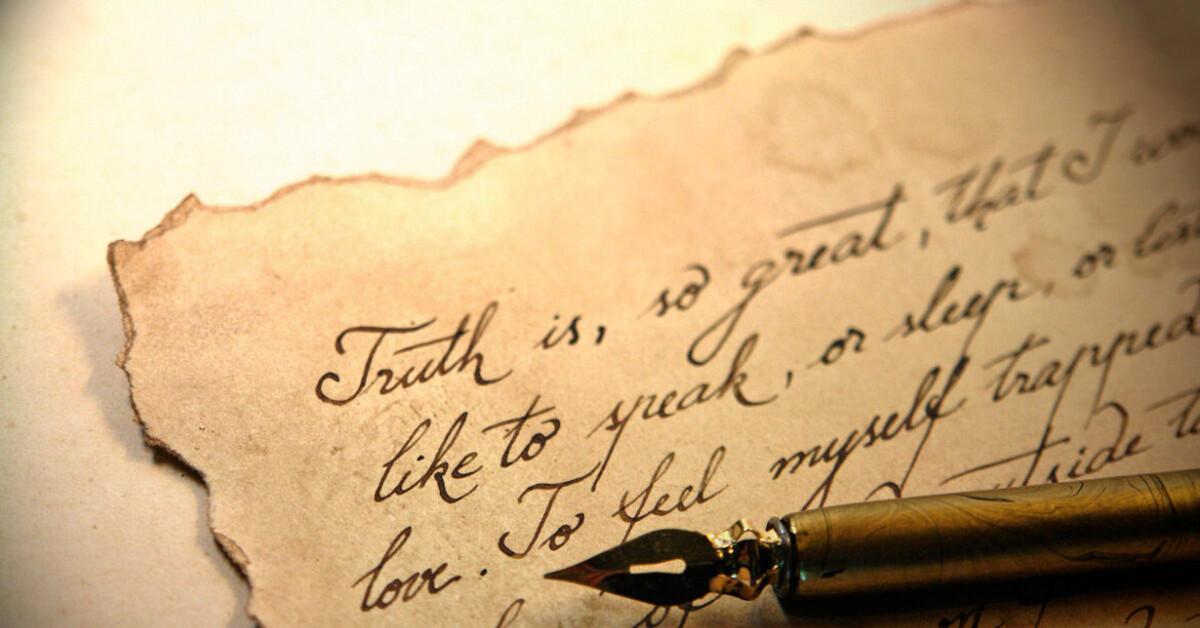 Truth is, so great, that I
like to speak, or sleep, or
love. To feel myself trapped